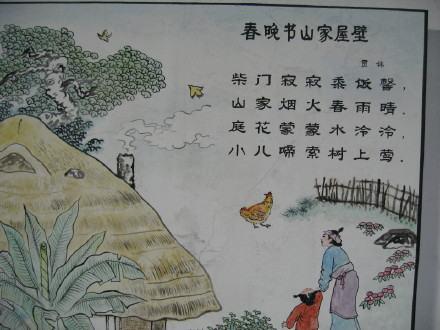 春晚书山家屋壁
贯休
柴门寂寂黍饭馨，
山家烟火春雨晴．
庭花蒙蒙水泠泠，
小儿啼索树上莺．